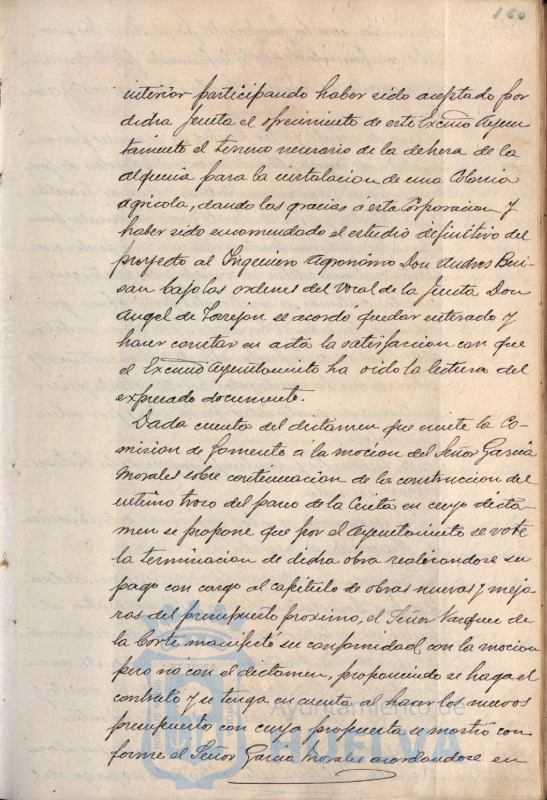 160
interior participando haber sido aceptado por
dicha Junta el ofrecimiento de este Excmo Ayun-
tamiento el terreno necesario de la dehesa de la
alqueria para la instalacion de una Colonia
agricola, dando las gracias á esta Corporacion y
haber sido encomendado el estudio definitivo del
proyecto al Ingeniero agronómo Don Andres Bui-
san bajo las ordenes del vocal de la Junta Don
Angel de Torrejon se acordó quedar enterado y
hacer constar en acta la satisfaccion con que
el Excmo Ayuntamiento ha oido la lectura del
expresado documento.
Dada cuenta del dictamen que emite la Co-
mision de fomento á la mocion del Señor Garcia
Morales sobre continuacion de la construccion del
ultimo trozo del paseo de la Cinta en cuyo dicta-
men se propone que por el Ayuntamiento se vote
la terminacion de dicha obra realizandose su
pago con cargo al capitulo de obras nuevas y mejo-
ras del presupuesto proximo, el Señor Vazquez de
la Corte manifestó su conformidad con la mocion
pero no con el dictamen, proponiendo se haga el
contrato y se tenga en cuenta al hacer los nuevos
presupuestos, con cuya propuesta se mostró con-
forme el Señor Garcia Morales acordandose en
Ayuntamiento de
HUELVA